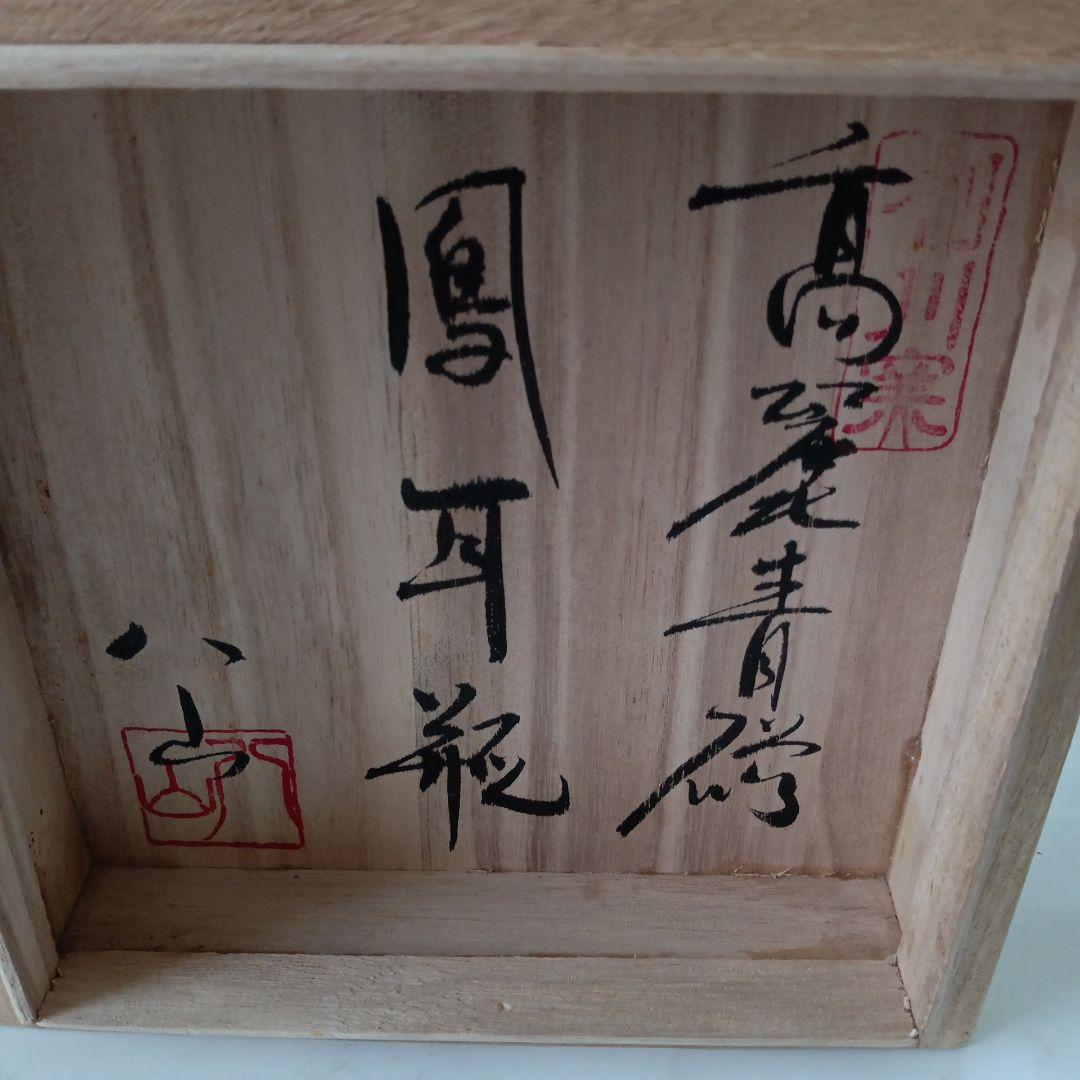 高麗青磁
鳳耳瓶
八山